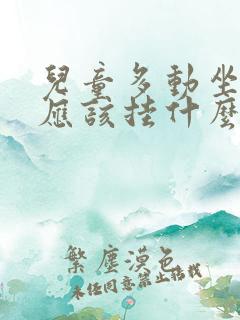 兒童多動坐
應該挂什麼
繁塵漠色
未任同意禁止搭載